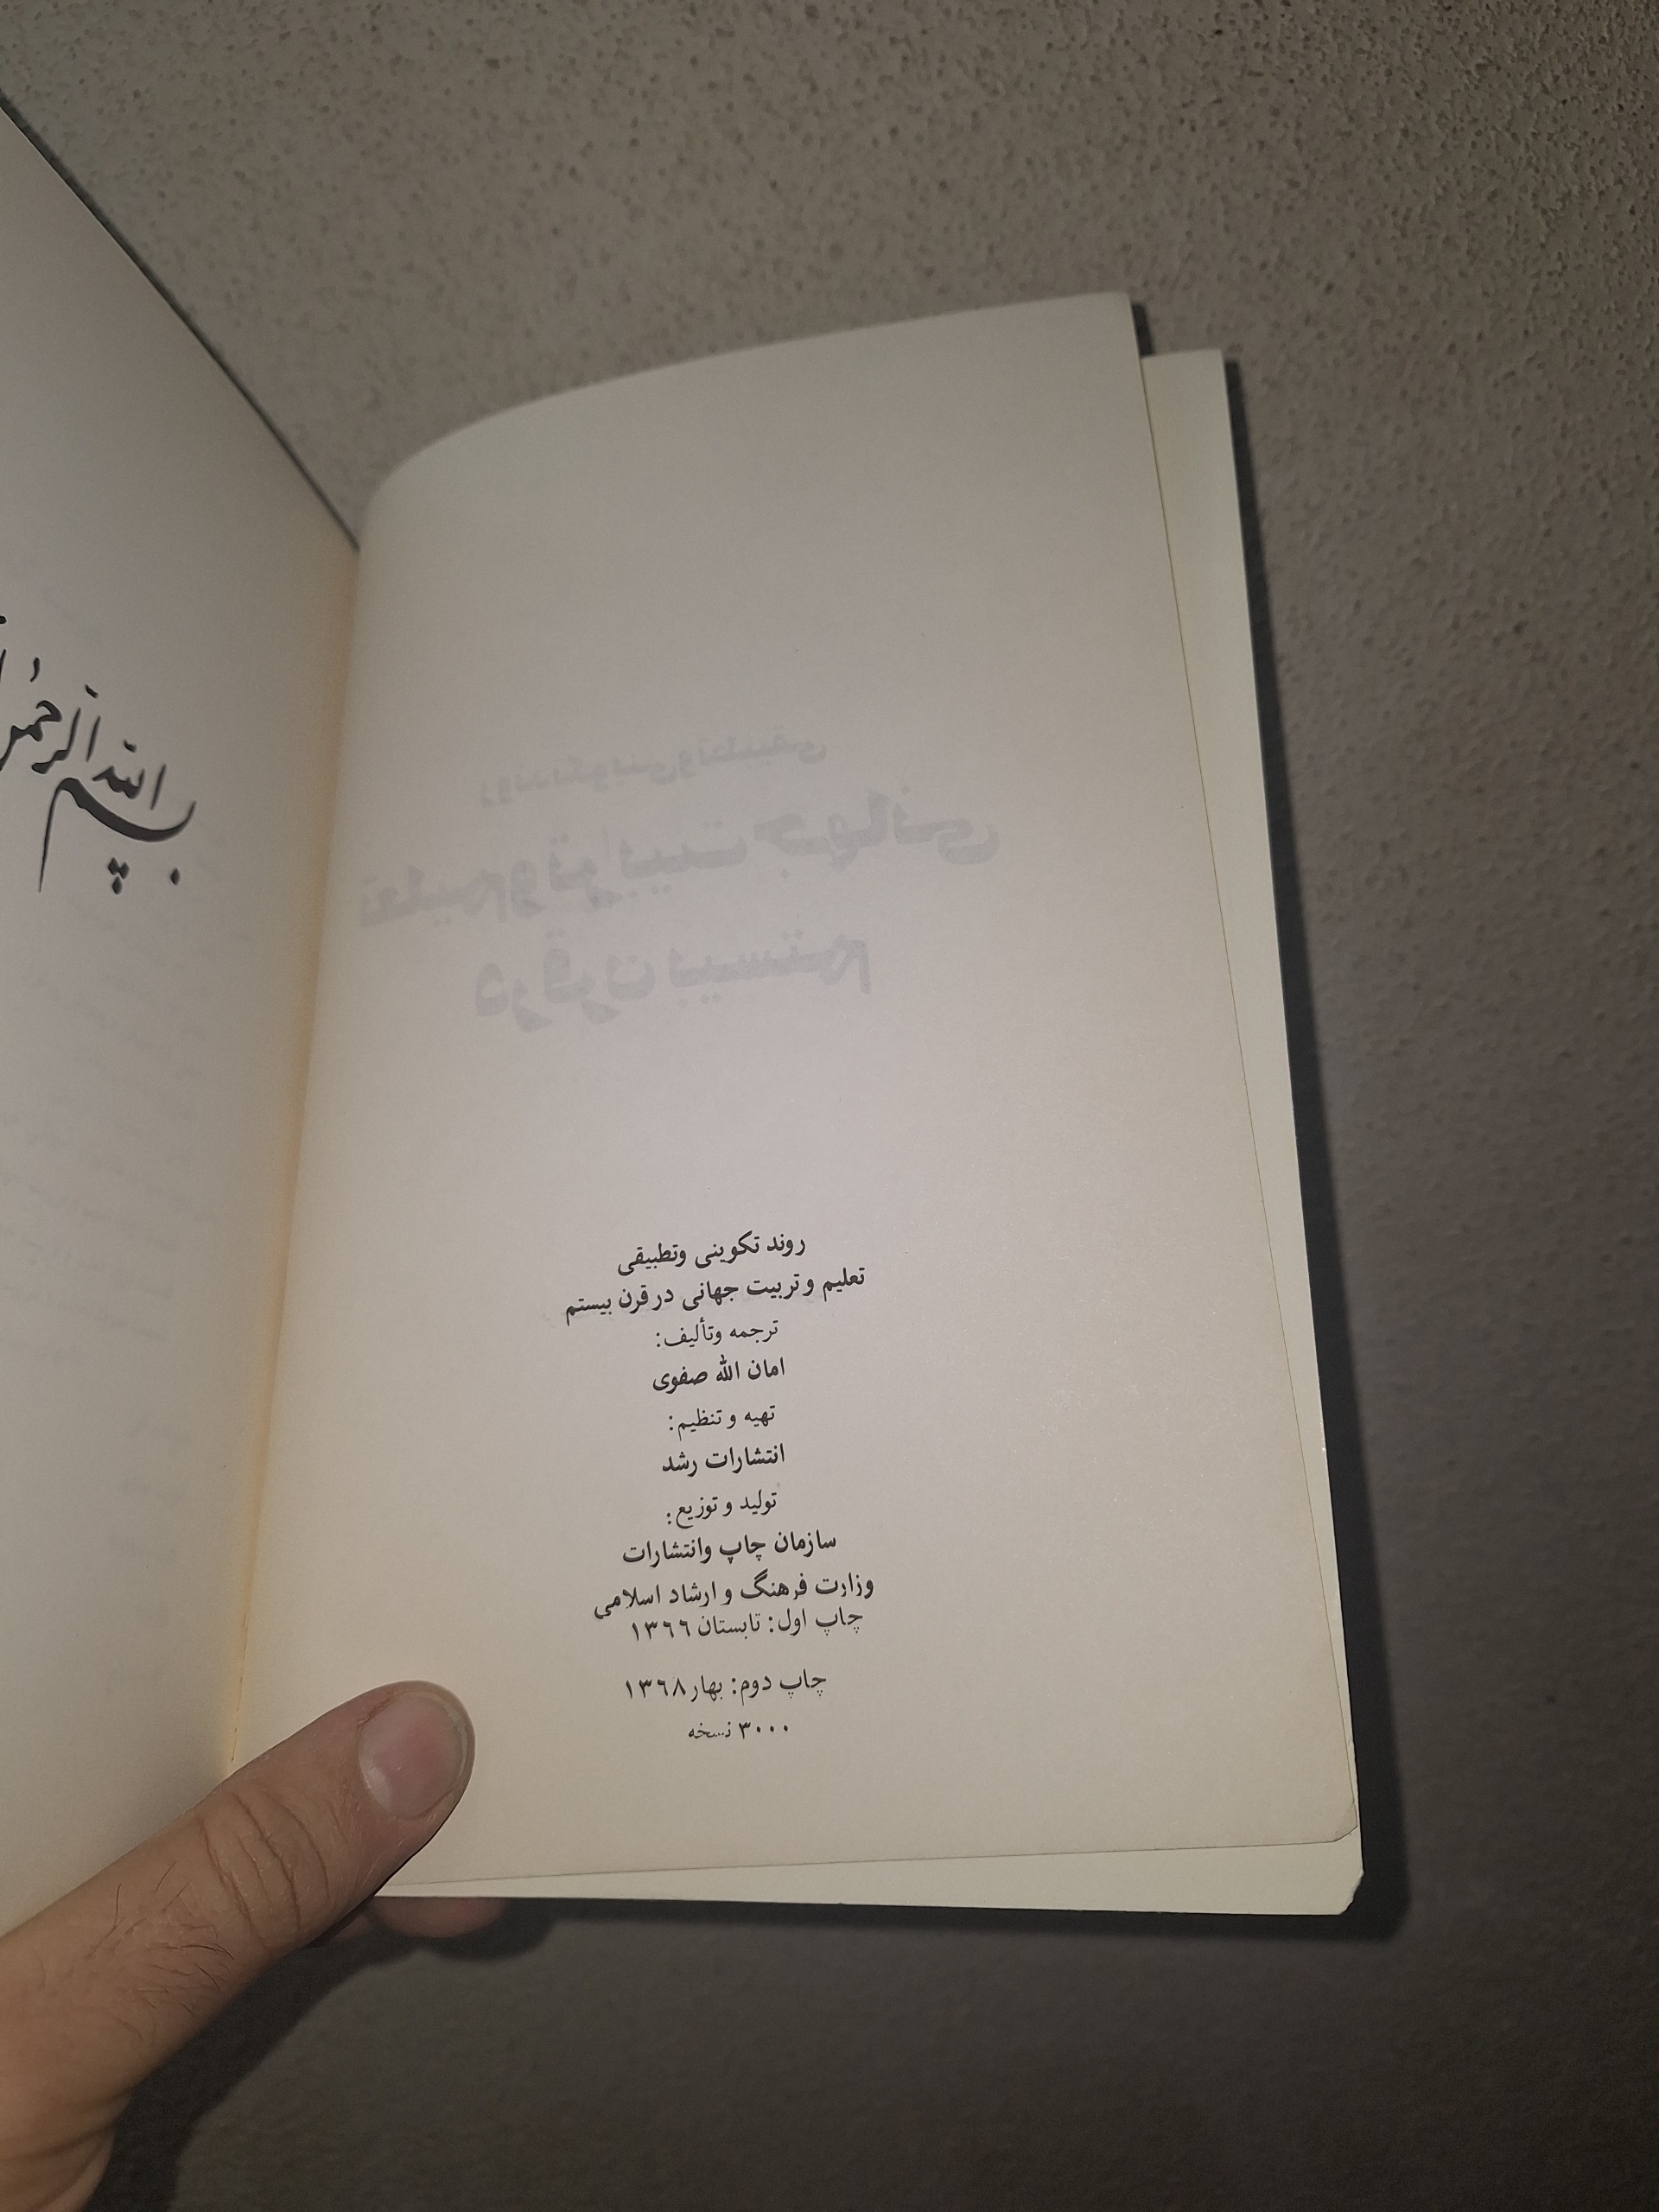 بسم الله الرحمن
روند تکوینی وتطبیقی
تعلیم وتربیت جهانی
در قرن بیستم
روند تکوینی وتطبیقی
تعلیم و تربیت جهانی در قرن بیستم
ترجمه وتألیف:
امان الله صفوی
تهیه و تنظیم:
انتشارات رشد
تولید و توزیع:
سازمان چاپ وانتشارات
وزارت فرهنگ و ارشاد اسلامی
چاپ اول: تابستان ۱۳٦٦
چاپ دوم: بهار ۱۳٦۸
۳۰۰۰ نسخه